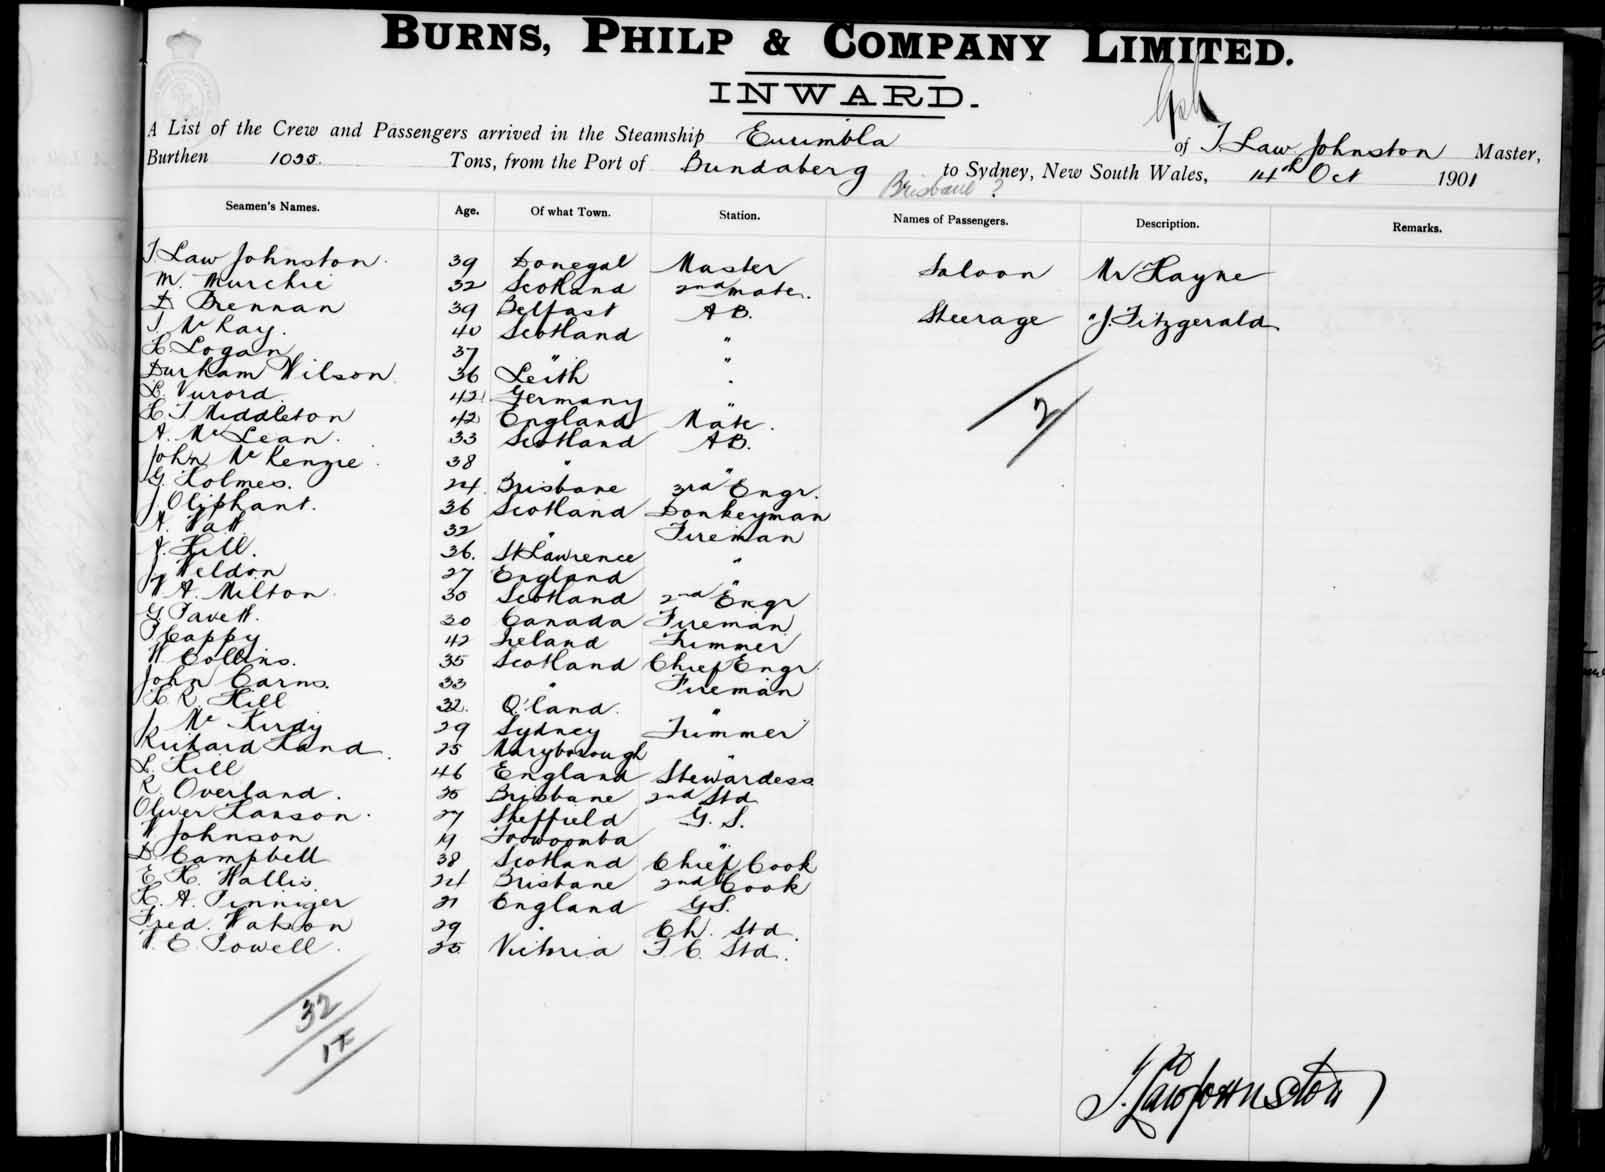 BURNS, PHILP & COMPANY LIMITED.
INWARD.
A List of the Crew and Passengers arrived in the Steamship Eurimbla of T. Law Johnston Master,
Burthen 1055 Tons, from the Port of Bundaberg to Sydney, New South Wales, 14th Oct 1901
Brisbane ?
Seamen's Names. Age. Of what Town. Station. Names of Passengers. Description. Remarks.
T Law Johnston 39 Donegal Master Saloon Mr Hayne
M. Murchie 32 Scotland 2nd Mate.
D Brennan 39 Belfast AB. Steerage " J. Fitzgerald
T McKay. 40 Scotland "
H Logan 37 " "
Durham Wilson 36 Leith "
L. Vurord 42 Germany "
H. T Middleton 42 England Mate.
A. McLean. 33 Scotland AB.
John McKenzie. 38 " "
G. Holmes. 24 Brisbane 3rd Engr.
J Oliphant. 36 Scotland Donkeyman
A. Watt 32 " Fireman
A. Hill. 36. St Lawrence "
J Weldon 27 England "
W A. Milton 30 Scotland 2nd Engr
G. 30 Canada Fireman
T Cappy 42 Ireland Trimmer
W Collins. 35 Scotland Chief Engr
John Carns. 33 " Fireman
H R. Hill 32. Q'land. "
J McKirdy 29 Sydney Trimmer
Richard Hand. 25 Maryborough "
L. Hill 46 England Stewardess
R. Overland. 25 Brisbane 2nd Std
Oliver Hanson. 27 Sheffield G. S.
W Johnson 19 Toowoomba "
D Campbell 38 Scotland Chief Cook
E H. Wallis 24 Brisbane 2nd Cook
H. A. Pinniger 21 England GS.
Fred. Watson 29 " Ch. Std.
W. E. Powell. 25 Victoria F. C. Std.
2
32
T. Law Johnston